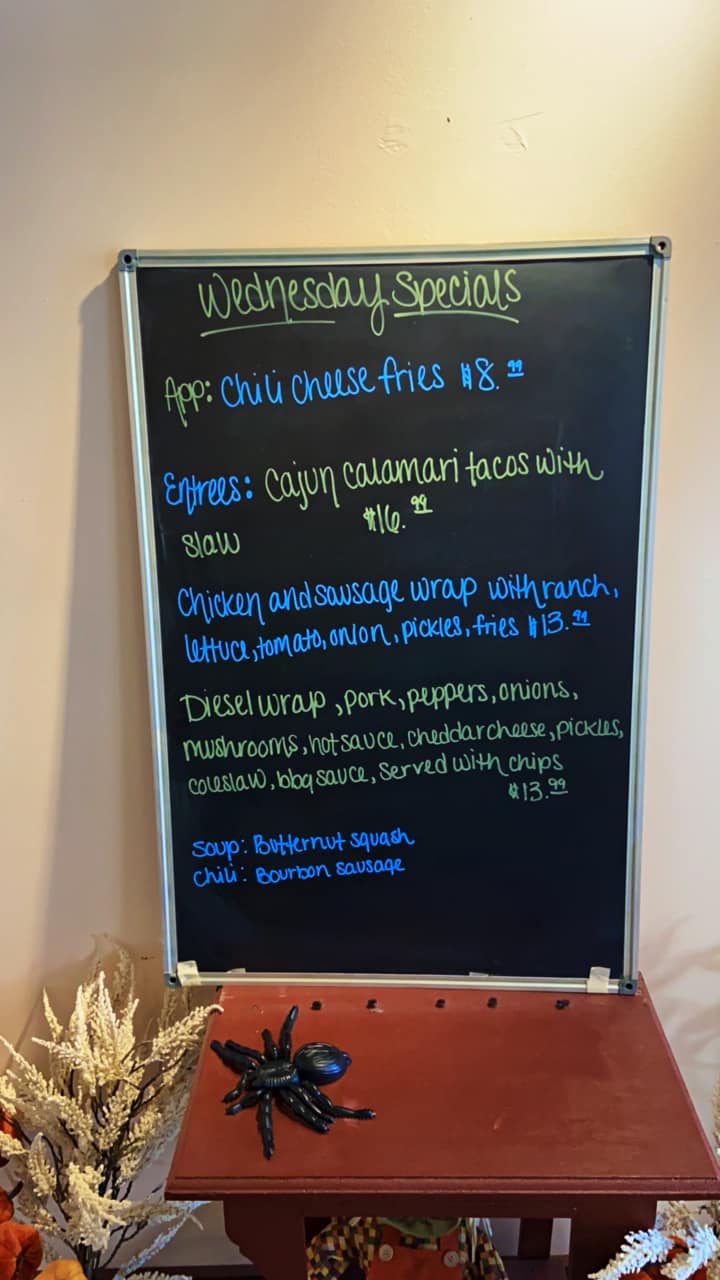 Wednesday Specials
App: Chili cheese fries $8.99
Entrees: Cajun calamari tacos with
slaw $16.99
Chicken and sausage wrap with ranch,
lettuce, tomato, onion, pickles, fries $13.99
Diesel wrap, pork, peppers, onions,
mushrooms, hot sauce, cheddar cheese, pickles,
coleslaw, bbq sauce, served with chips
$13.99
Soup: Butternut squash
Chili: Bourbon sausage